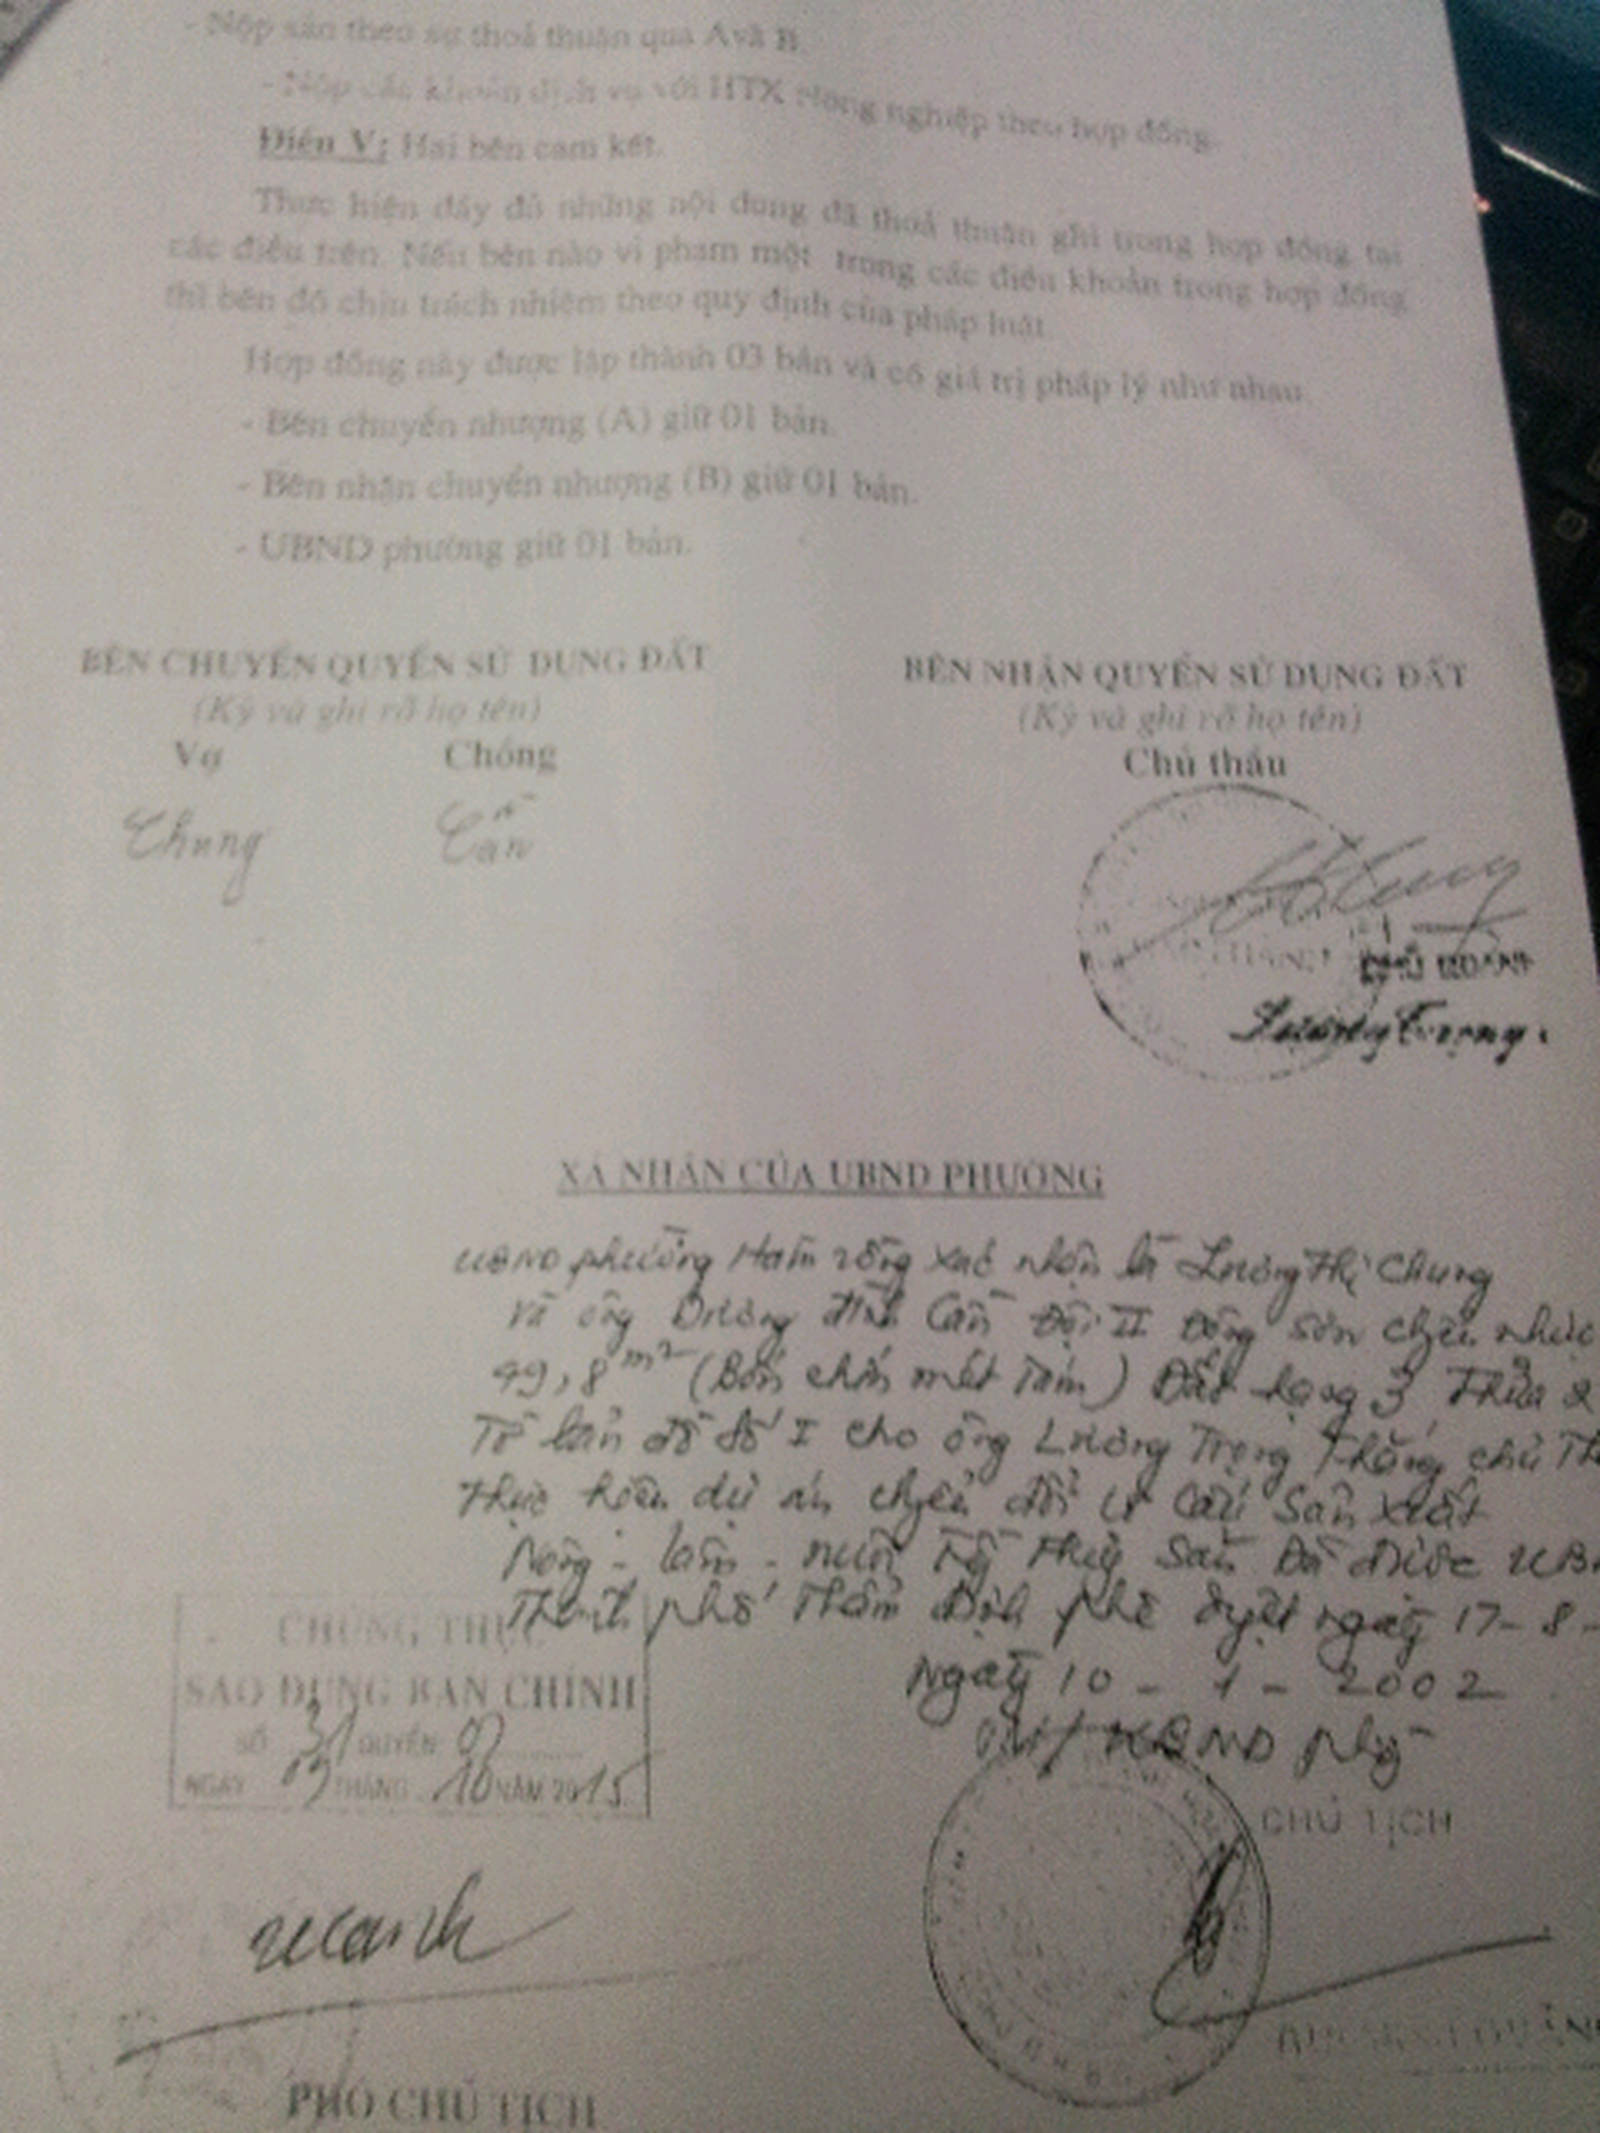 - Nộp sản theo sự thoả thuận qua A và B.
- Nộp các khoản dịch vụ với HTX Nông nghiệp theo hợp đồng.
Điều V: Hai bên cam kết.
Thực hiện đầy đủ những nội dung đã thoả thuận ghi trong hợp đồng tại
các điều trên. Nếu bên nào vi phạm một trong các điều khoản trong hợp đồng
thì bên đó chịu trách nhiệm theo quy định của pháp luật.
Hợp đồng này được lập thành 03 bản và có giá trị pháp lý như nhau.
- Bên chuyển nhượng (A) giữ 01 bản.
- Bên nhận chuyển nhượng (B) giữ 01 bản.
- UBND phường giữ 01 bản.
BÊN CHUYỂN QUYỀN SỬ DỤNG ĐẤT
(Ký và ghi rõ họ tên)
Vợ Chồng
Chung Cần
BÊN NHẬN QUYỀN SỬ DỤNG ĐẤT
(Ký và ghi rõ họ tên)
Chủ thầu
XÁ NHẬN CỦA UBND PHƯỜNG
UBND phường Hàm rồng xác nhận bà Lương Thị Chung
Và ông Dương đình Cần Đội II Đông sơn chuyển nhượ
49,8 m2 (Bốn chín mét Tám) Đất hạng 3 Thửa 2
Tờ bản đồ số I cho ông Lương Trọng Thắng chủ Th
Thực hiện dự án chuyển đổi cơ cấu Sản Xuất
Nông - lâm - nuôi trồng Thủy Sản Đã được UB
Thành phố Thẩm định phê duyệt ngày 17-8-
Ngày 10 - 1 - 2002
TM/ UBND Phg
CHỦ TỊCH
CHỨNG THỰC
SAO ĐÚNG BẢN CHÍNH
SỐ 31 QUYỂN 01
NGÀY 09 THÁNG 10 NĂM 2015
PHÓ CHỦ TỊCH